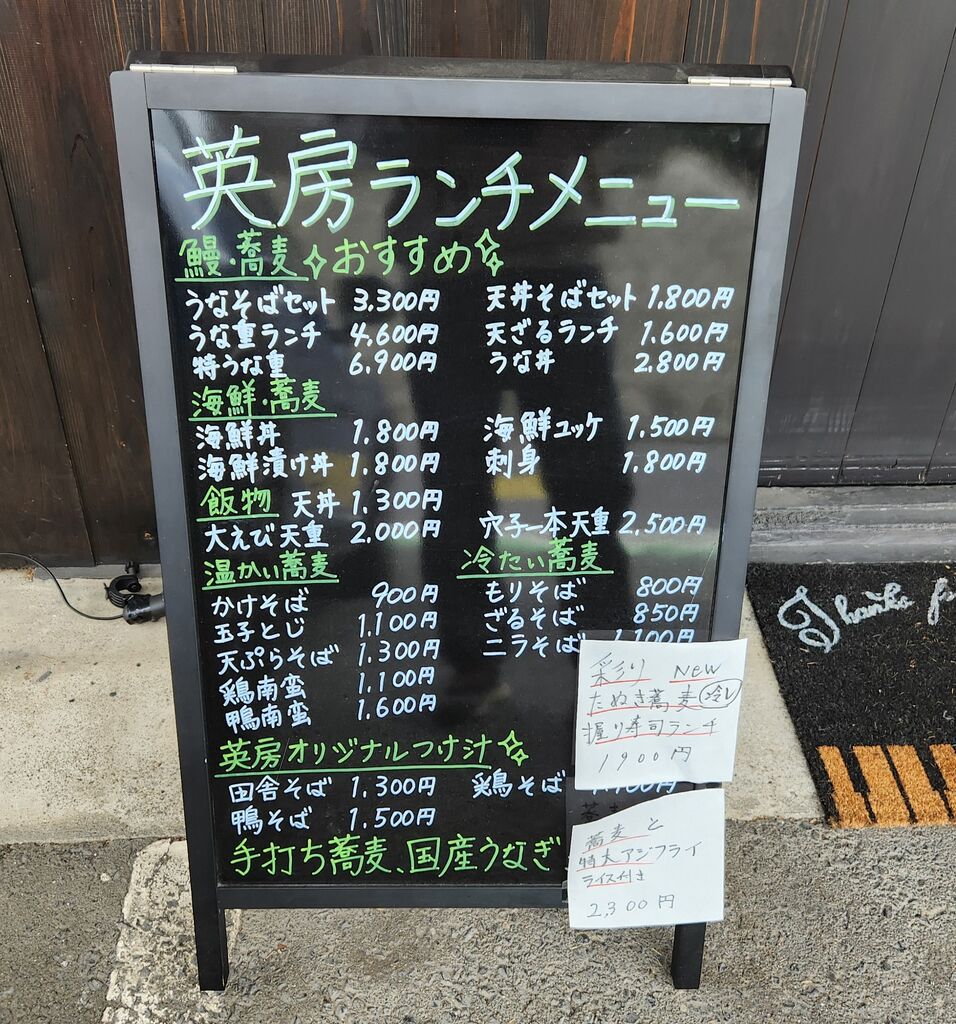 英房ランチメニュー
鰻・蕎麦 おすすめ
うなそばセット 3.300円 天丼そばセット 1.800円
うな重ランチ 4.600円 天ざるランチ 1.600円
特うな重 6.900円 うな丼 2.800円
海鮮・蕎麦
海鮮丼 1.800円 海鮮ユッケ 1.500円
海鮮漬け丼 1.800円 刺身 1.800円
飯物 天丼 1.300円
大えび天重 2.000円 穴子一本天重 2.500円
温かい蕎麦 冷たい蕎麦
かけそば 900円 もりそば 800円
玉子とじ 1.100円 ざるそば 850円
天ぷらそば 1.300円 ニラそば 1.100円
鶏南蛮 1.100円
鴨南蛮 1.600円
英房オリジナルつけ汁
田舎そば 1.300円 鶏そば
鴨そば 1.500円
手打ち蕎麦、国産うなぎ
彩り NEW
たぬき蕎麦 冷し
握り寿司ランチ
1900円
蕎麦と
特大アジフライ
ライス付き
2,300円
Thanks fo